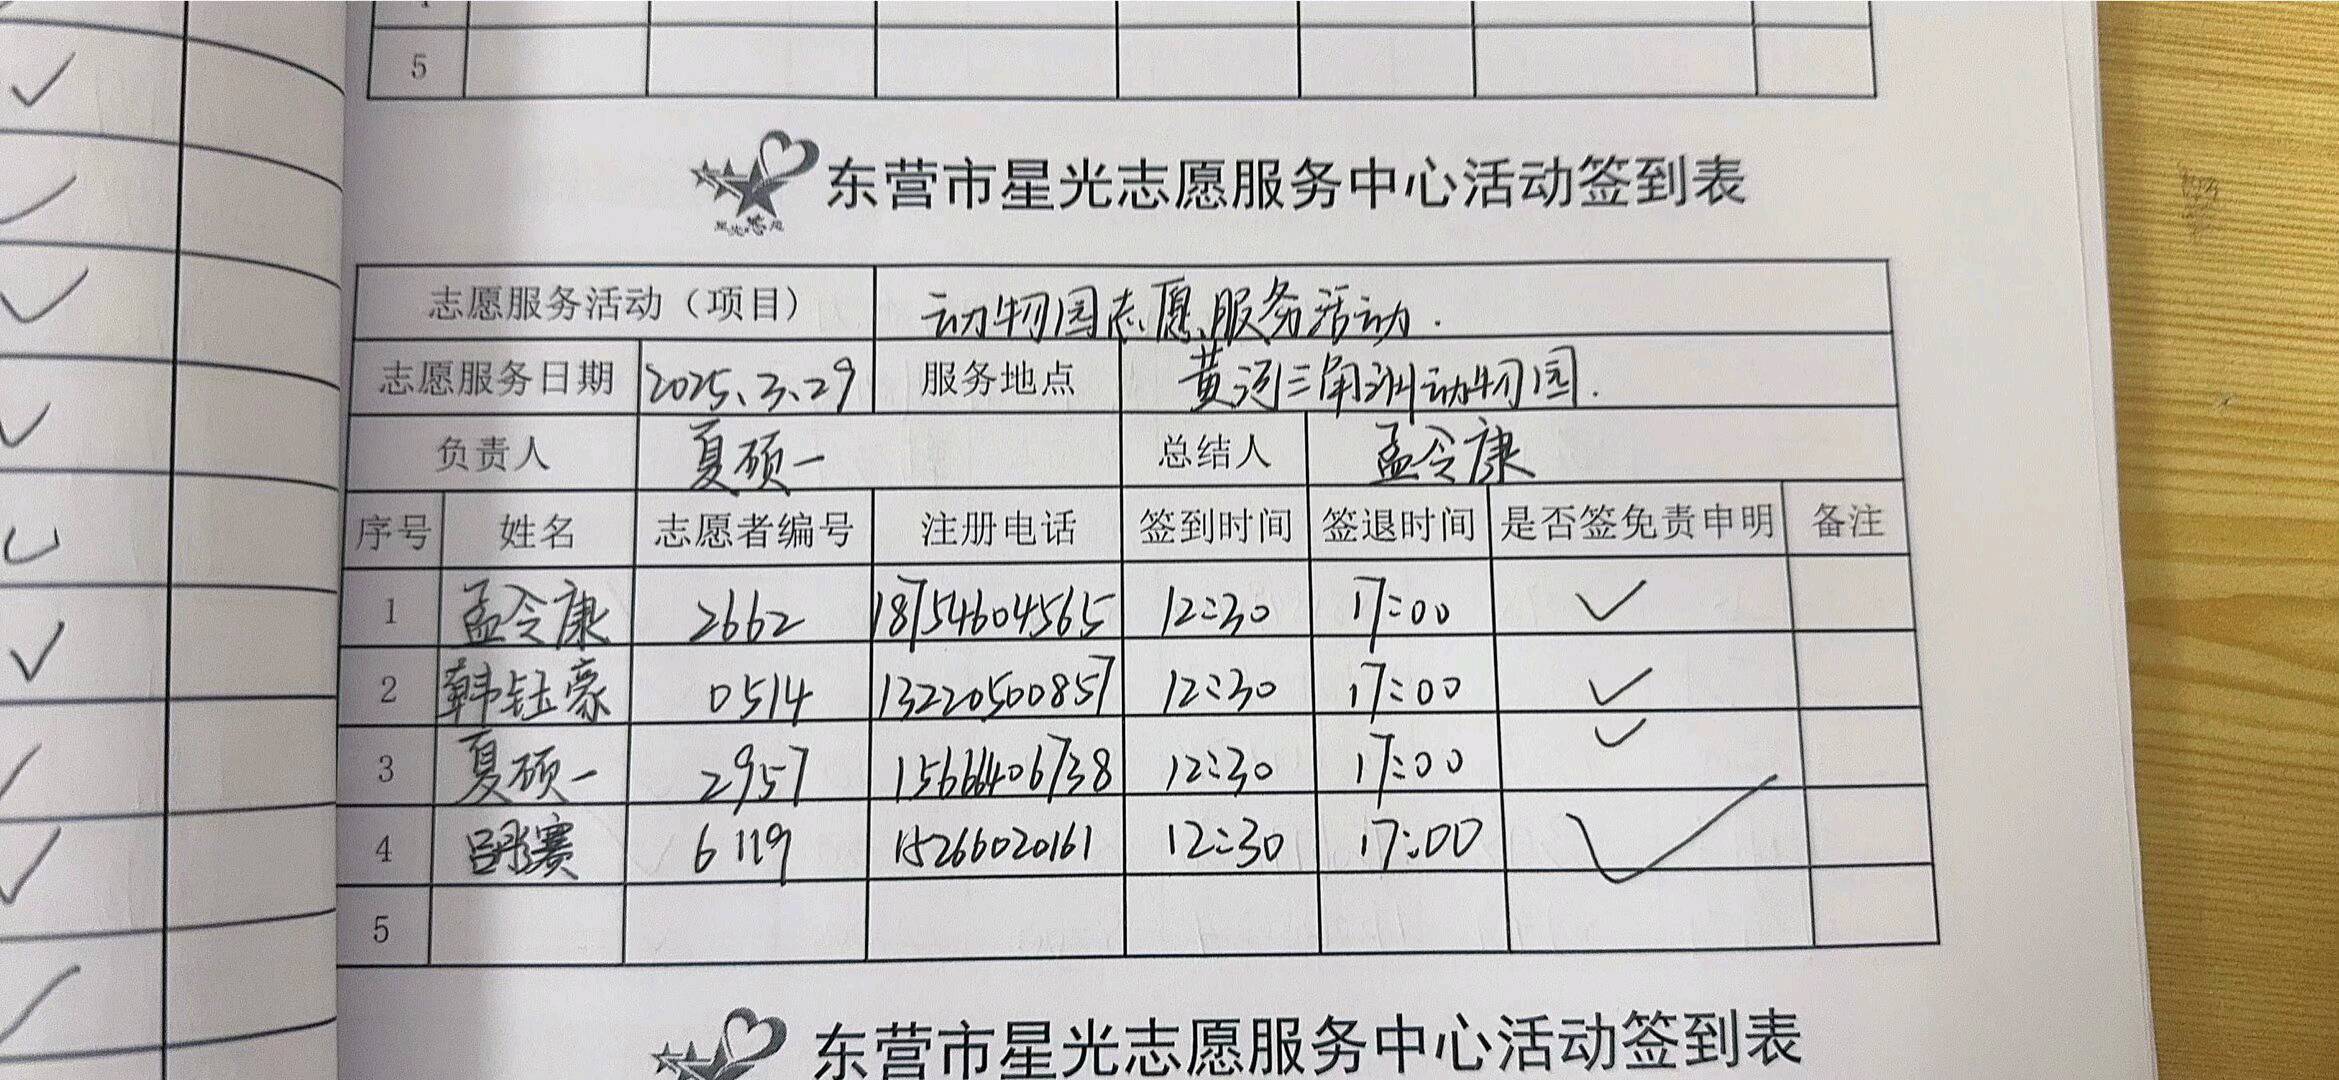 5
东营市星光志愿服务中心活动签到表
志愿服务活动（项目） 动物园志愿服务活动.
志愿服务日期 2025.3.29 服务地点 黄河三角洲动物园.
负责人 夏硕一 总结人 孟令康
序号 姓名 志愿者编号 注册电话 签到时间 签退时间 是否签免责申明 备注
1 孟令康 2662 18754604565 12:30 17:00 ✓
2 韩钰豪 0514 13220500857 12:30 17:00 ✓
3 夏硕一 2957 15666406738 12:30 17:00 ✓
4 吕彤赛 6119 15266020161 12:30 17:00 ✓
5
东营市星光志愿服务中心活动签到表